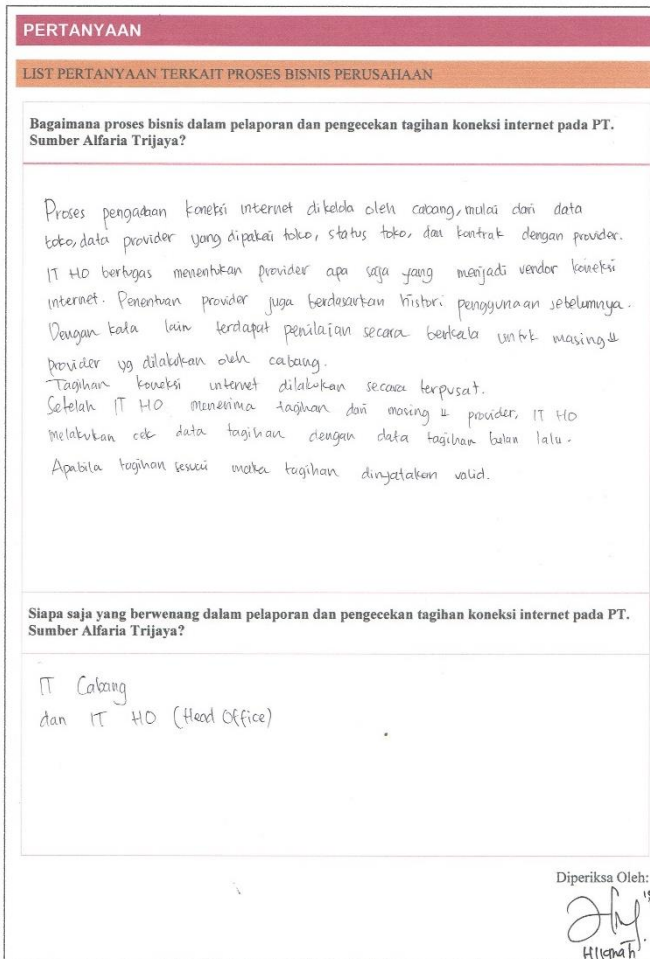 PERTANYAAN
LIST PERTANYAAN TERKAIT PROSES BISNIS PERUSAHAAN
Bagaimana proses bisnis dalam pelaporan dan pengecekan tagihan koneksi internet pada PT.
Sumber Alfaria Trijaya?
Proses pengadaan koneksi internet dikelola oleh cabang, mulai dari data
toko, data provider yang dipakai toko, status toko, dan kontrak dengan provider.
IT HO bertugas menentukan provider apa saja yang menjadi vendor koneksi
internet. Penentuan provider juga berdasarkan histori penggunaan sebelumnya.
Dengan kata lain terdapat penilaian secara berkala untuk masing"
provider yg dilakukan oleh cabang.
Tagihan koneksi internet dilakukan secara terpusat.
Setelah IT HO menerima tagihan dari masing" provider, IT HO
melakukan cek data tagihan dengan data tagihan bulan lalu.
Apabila tagihan sesuai maka tagihan dinyatakan valid.
Siapa saja yang berwenang dalam pelaporan dan pengecekan tagihan koneksi internet pada PT.
Sumber Alfaria Trijaya?
IT Cabang
dan IT HO (Head Office)
Diperiksa Oleh: